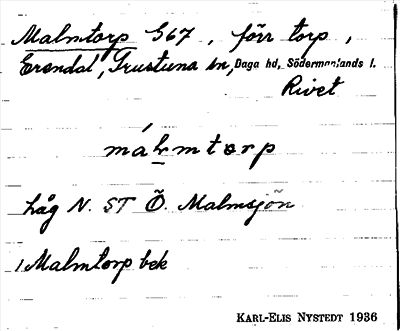 Malmtorp 567, förr torp,
Erendal, Frustuna sn, Daga hd, Södermanlands l.
Rivet
málmtorp
låg N. ST Ö. Malmsjön
1 Malmtorp bek
KARL-ELIS NYSTEDT 1936